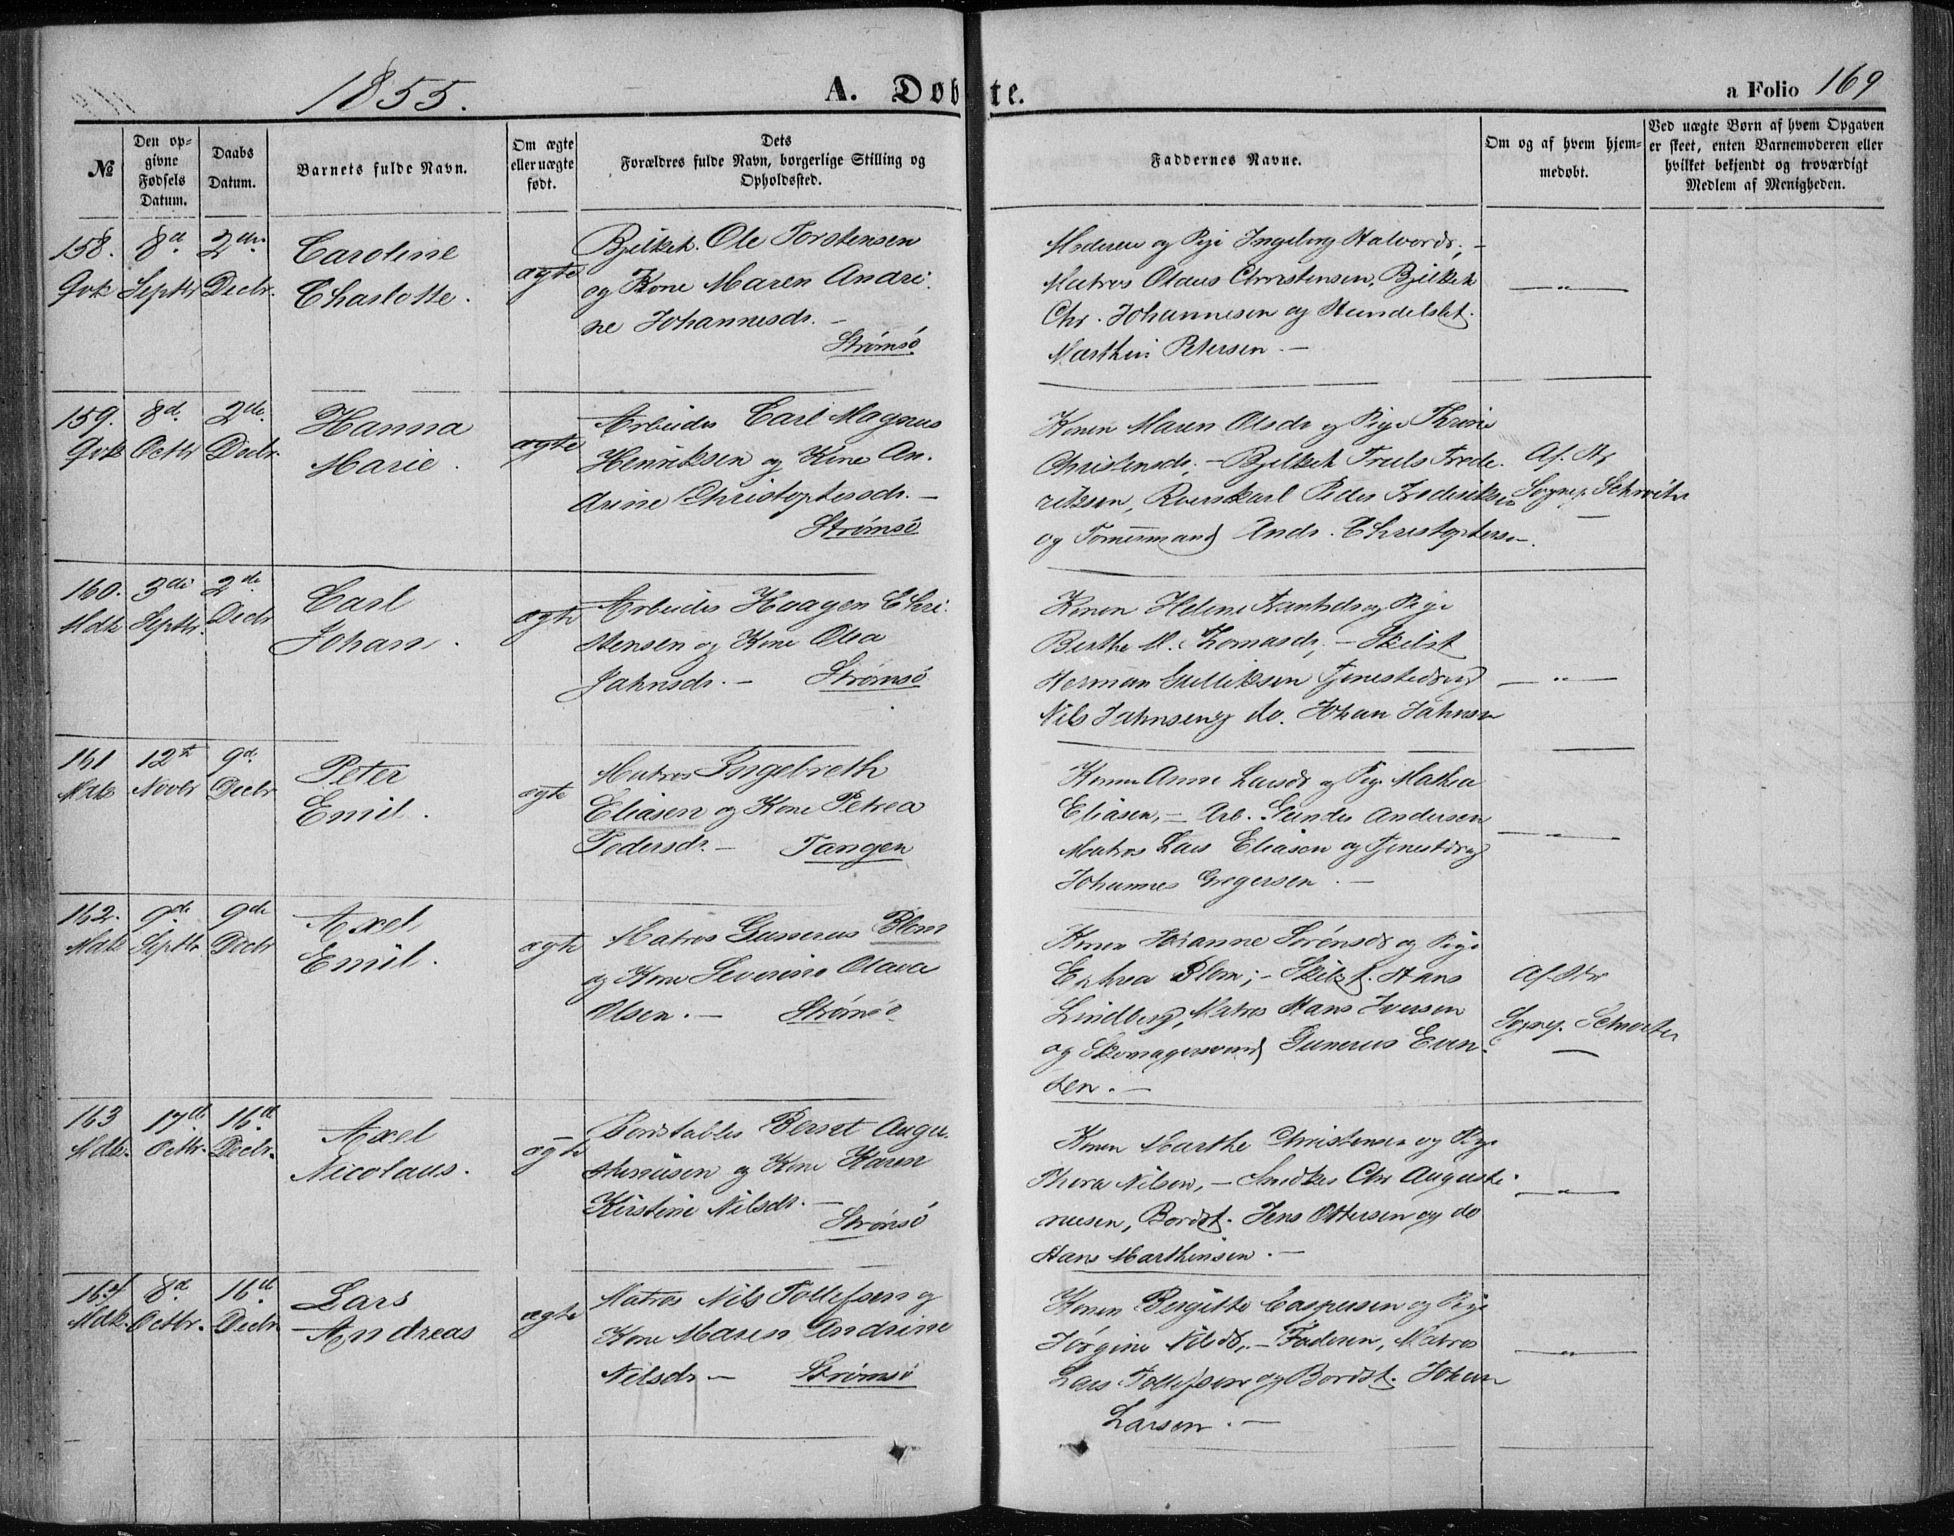 1855.
A. Døbte.
a Folio 169
№
Den opgivne Fødsels Datum.
Daabs Datum.
Barnets fulde Navn.
Om ægte eller uægte født.
Dets Forældres fulde Navn, borgerlige Stilling og Opholdssted.
Faddernes Navne.
Om og af hvem hjemmedøbt.
Ved uægte Børn af hvem Opgaven er skeet, enten Barnemoderen eller hvilket bekjendt og troværdigt Medlem af Menigheden.
158. 8d 2den
Qvk Septbr Decbr.
Caroline
Charlotte.
ægte
Bjelkeh. Ole Torstensen
og Kone Maren Andri-
ne Johannesdr. —
Strømsö
Moderen og Pige Ingeborg Halvorsdr, —
Matros Olaus Christensen, Bjelkeh
Chr. Johannesen og Handelsbet.
Marthin Petersen. —
— " —
159. 8d. 2de.
Qvk Octbr Decbr.
Hanna
Marie.
ægte
Arbeider Carl Magnus
Henriksen og Kone An-
drine Christophersdr. —
Strømsö
Konen Maren Olsdr og Pige Thrine
Christensdr, — Bjelkeh Truls Frede-
riksen, Roerskarl Peder Frederiksen
og Tømmermand Andr. Christophersen.
Af Hr
Sognep. Schrøter
—
160. 3die 2de
Mdk Septbr. Decbr
Carl
Johan.
ægte
Arbeider Haagen Chri-
stensen og Kone Olea
Jahnsdr. — Strømsö
Konen Helene Frantsdr og Pige
Berthe M. Thomasdr, — Skilst
Herman Gulliksen Tjenestedreng
Nils Jahnsen og do. Johan Jahnsen
— " —
161 12te 9de.
Mdk Novbr Decbr
Peter
Emil.
ægte
Matros Ingebreth
Eliasen og Kone Petrea
Pedersdr. — Tangen
Konen Anne Larsdr og Pige Mathea
Eliasen, — Arb. Gunder Andersen
Matros Lars Eliasen og Tjenestdreng
Johannes Gregersen. —
— " —
162. 9de 9de
Mdk Septbr. Decbr
Axel
Emil.
ægte
Matros Gunerus Blom
og Kone Severine Olava
Olsen. — Strømsö
Konen Johanne Sørensdr og Pige
Blom; — Skilst. Hans
Lindberg, Matros Hans Iversen
og Skomagersvend Gunerus Even-
sen. —
Af Hr
Sognep. Schrøter
—
163 17de 16de
Mdk. Octbr. Decbr.
Axel
Nicolaus.
ægte
Bordstabler Bernt Augu-
stinusen og Kone Karen
Kirstine Nilsdr. —
Strømsö
Konen Marthe Christensen og Pige
Thora Nilsen, — Snedker Chr Augusti-
nusen, Bordst. Jens Ottersen og do
Hans Marthinsen. —
— " —
164 8d 16d
Mdk. Octbr. Decbr
Lars
Andreas
ægte
Matros Nils Tollefsen og
Kone Maren Andrine
Nilsdr — Strømsö
Konen Bergitte Caspersen og Pige
Jörgine Nilsdr, — Faderen, Matros
Lars Tollefsen og Bordst. Johan
Larsen. —
— " —